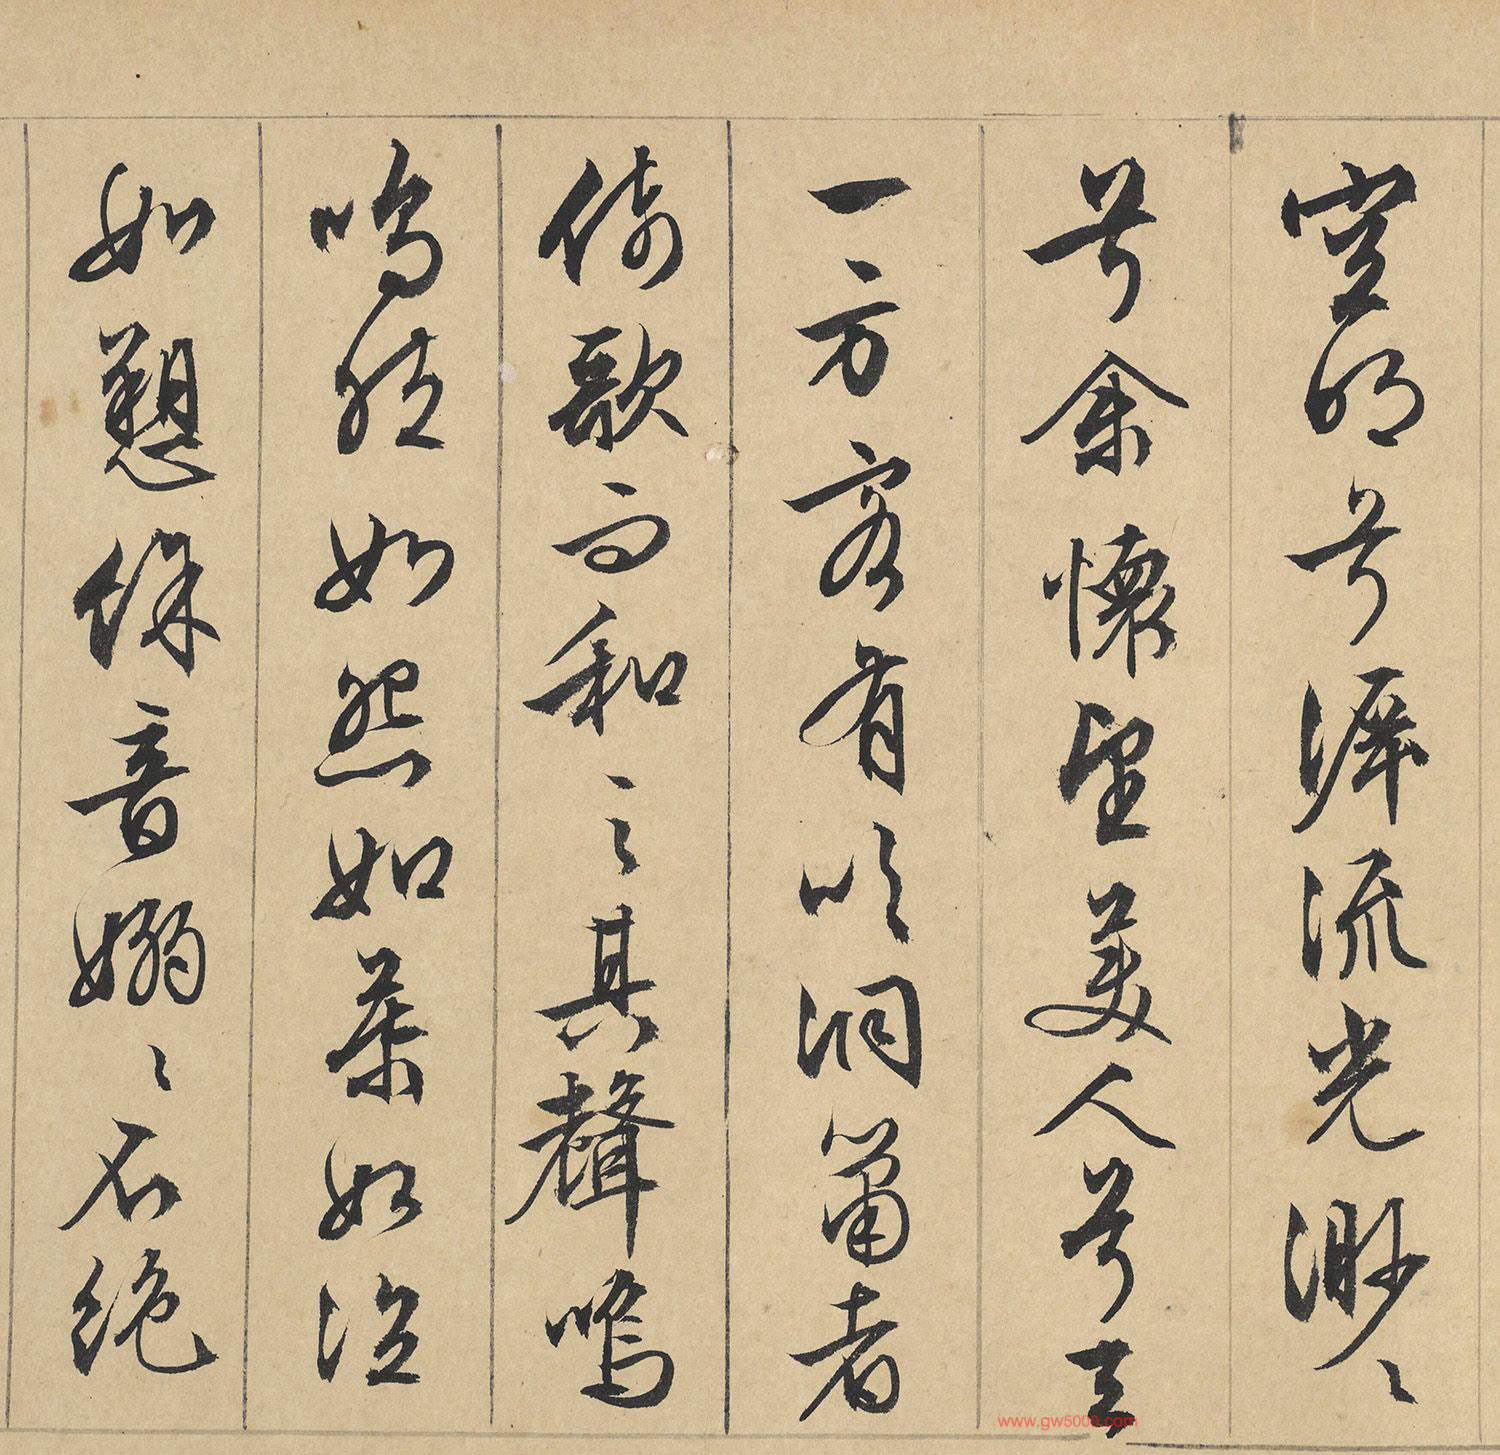 空明兮泝流光渺〻
兮余懷望美人兮天
一方客有吹洞簫者
倚歌而和之其聲嗚
嗚然如怨如慕如泣
如愬餘音嫋〻不絕
www.gw5000.com